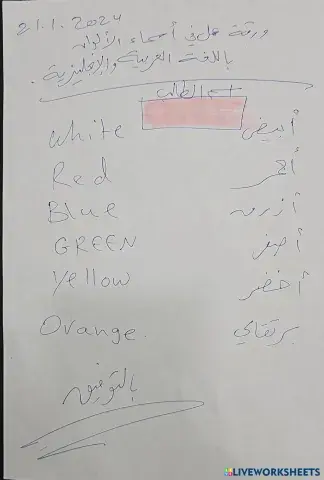 21.1.2024
ورقة عمل في أسماء الألوان
باللغة العربية والإنجليزية.
اسم الطالب
White أبيض
Red أحمر
Blue أزرق
GREEN أصفر
Yellow أخضر
Orange. برتقالي
بالتوفيق
LIVEWORKSHEETS